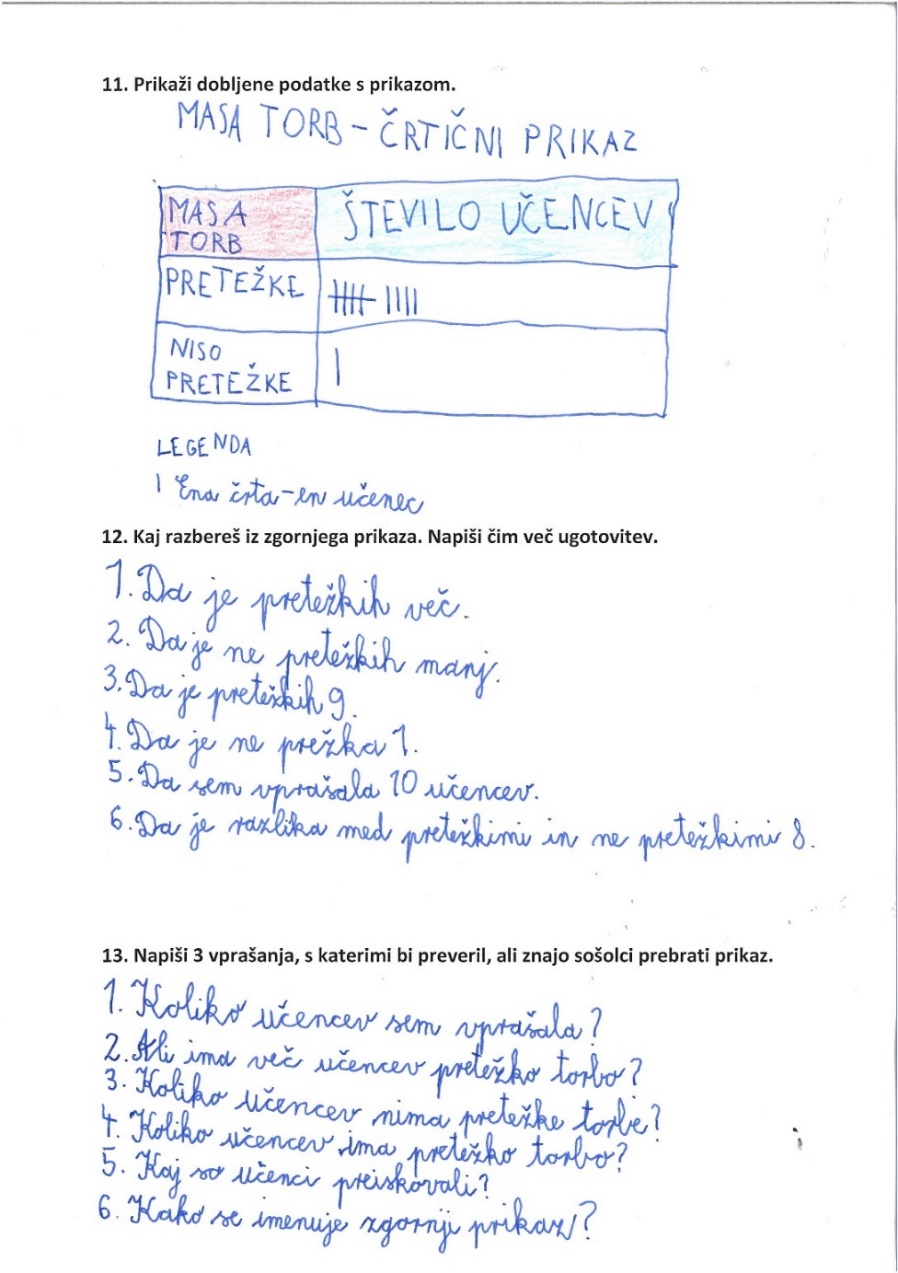 11. Prikaži dobljene podatke s prikazom.
MASA TORB - ČRTIČNI PRIKAZ
MASA TORB
ŠTEVILO UČENCEV
PRETEŽKE
NISO PRETEŽKE
LEGENDA
| Ena črta - en učenec
12. Kaj razbereš iz zgornjega prikaza. Napiši čim več ugotovitev.
1. Da je pretežkih več.
2. Da je ne pretežkih manj.
3. Da je pretežkih 9.
4. Da je ne prežka 1.
5. Da sem vprašala 10 učencev.
6. Da je razlika med pretežkimi in ne pretežkimi 8.
13. Napiši 3 vprašanja, s katerimi bi preveril, ali znajo sošolci prebrati prikaz.
1. Koliko učencev sem vprašala?
2. Ali ima več učencev pretežko torbo?
3. Koliko učencev nima pretežke torbe?
4. Koliko učencev ima pretežko torbo?
5. Kaj so učenci preiskovali?
6. Kako se imenuje zgornji prikaz?